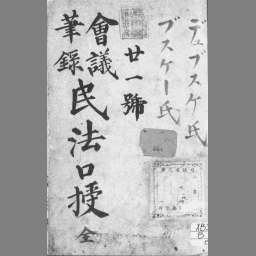 デュブスケ氏
ブスケー氏
廿一號
會議
筆録
民法口授
全